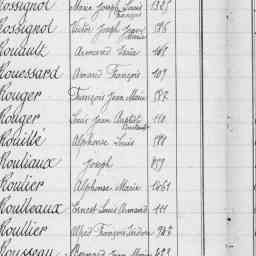 Rossignol Marie Joseph Louis François 1325
Rossignol Victor Joseph Jean Marie
Rouault Armand Louis
Rouessard Amand François 109
Rouger François Jean Marie
Rouger Louis Jean Baptiste 110
Rouillé Alphonse Louis
Rouliaux Joseph 859
Roulier Alphonse Marie 1061
Roulleaux Ernest Louis Armand 111
Roullier Alfred François Isidore
Rousseau Bernard Jean Marie